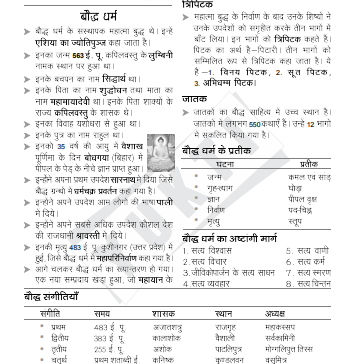 बौद्ध धर्म
बौद्ध धर्म के संस्थापक महात्मा बुद्ध थे। इन्हें
एशिया का ज्योतिपुञ्ज कहा जाता है।
इनका जन्म 563 ई. पू. कपिलवस्तु के लुम्बिनी
नामक स्थान पर हुआ था।
इनके बचपन का नाम सिद्धार्थ था।
इनके पिता का नाम शुद्धोधन तथा माता का
नाम महामायादेवी था। इनके पिता शाक्यों के
राज्य कपिलवस्तु के शासक थे।
इनका विवाह यशोधरा से हुआ था।
इनके पुत्र का नाम राहुल था।
इनको 35 वर्ष की आयु में वैशाख
पूर्णिमा के दिन बोधगया (बिहार) में
पीपल के पेड़ के नीचे ज्ञान प्राप्त हुआ।
इन्होंने अपना प्रथम उपदेश सारनाथ में दिया जिसे
बौद्ध ग्रन्थों में धर्मचक्र प्रवर्तन कहा गया है।
इन्होंने अपने उपदेश आम लोगों की भाषा पाली
में दिये।
इन्होंने अपने सबसे अधिक उपदेश कौशल देश
की राजधानी श्रावस्ती में दिये।
इनकी मृत्यु 483 ई. पू. कुशीनगर (उत्तर प्रदेश) में
हुई, जिसे बौद्ध धर्म में महापरिनिर्वाण कहा गया है।
आगे चलकर बौद्ध धर्म का रूपान्तरण हो गया।
एक नया सम्प्रदाय खड़ा हुआ, जो महायान के
त्रिपिटक
महात्मा बुद्ध के निर्वाण के बाद उनके शिष्यों ने
उनके उपदेशों को संगृहीत करके तीन भागों में
बाँट लिया। इन भागों को त्रिपिटक कहते हैं।
पिटक का अर्थ है—पिटारी। तीन भागों को
सम्मिलित रूप से त्रिपिटक कहा जाता है। ये
हैं —1. विनय पिटक, 2. सूत पिटक,
3. अभिधम्म पिटक।
जातक
जातकों का बौद्ध साहित्य में उच्च स्थान है।
जातकों में लगभग 550 कथाएँ हैं। उन्हें 12 भागों
में संकलित किया गया है।
बौद्ध धर्म के प्रतीक
घटना प्रतीक
जन्म कमल एवं सांड़
गृह-त्याग घोड़ा
ज्ञान पीपल वृक्ष
निर्वाण पद-चिह्न
मृत्यु स्तूप
बौद्ध धर्म का अष्टांगी मार्ग
1. सत्य विश्वास 5. सत्य वाणी
2. सत्य विचार 6. सत्य कर्म
3. जीविकोपार्जन के सत्य साधन 7. सत्य स्मरण
4. सत्य व्यवहार 8. सत्य चिन्तन
बौद्ध संगीतियाँ
संगीति समय शासक स्थान अध्यक्ष
प्रथम 483 ई. पू. अजातशत्रु राजगृह महाकस्सप
द्वितीय 383 ई. पू. कालाशोक वैशाली सर्वकामिनी
तृतीय 255 ई. पू. अशोक पाटलिपुत्र मोग्गलिपुत्त तिस्स
चतुर्थ प्रथम शताब्दी ई. कनिष्क कुण्डलवन वसुमित्र